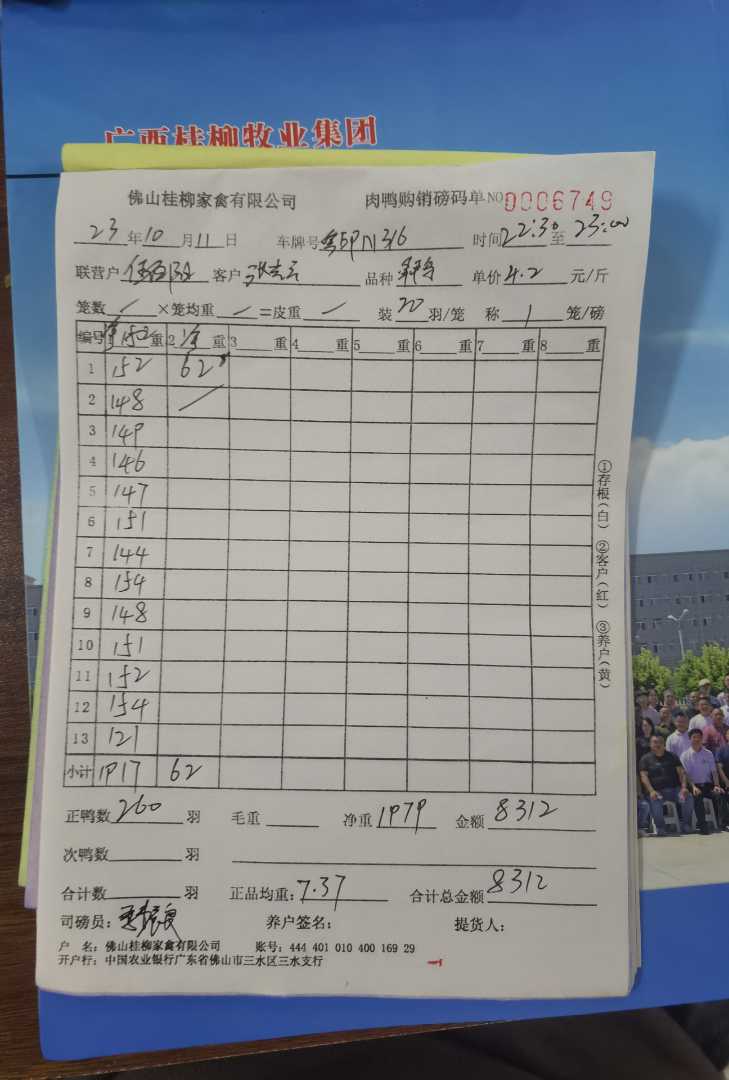 广西桂柳牧业集团
佛山桂柳家禽有限公司 肉鸭购销磅码单 NO 0006749
23 年 10 月 11 日 车牌号 粤 N316 时间 22:30 至 23:00
联营户 客户 品种 单价 4.2 元/斤
笼数 / ×笼均重 / =皮重 / 装 20 羽/笼 称 1 笼/磅
编号 1 重 2 净 重 3 重 4 重 5 重 6 重 7 重 8 重
1 152 62
2 148 /
3 149
4 146
5 147
6 151
7 144
8 154
9 148
10 151
11 152
12 154
13 121
小计 1917 62
正鸭数 260 羽 毛重 净重 1979 金额 8312
次鸭数 羽
合计数 羽 正品均重: 7.37 合计总金额 8312
司磅员: 养户签名: 提货人:
户 名: 佛山桂柳家禽有限公司 账号: 444 401 010 400 169 29
开户行: 中国农业银行广东省佛山市三水区三水支行
①存根(白) ②客户(红) ③养户(黄)